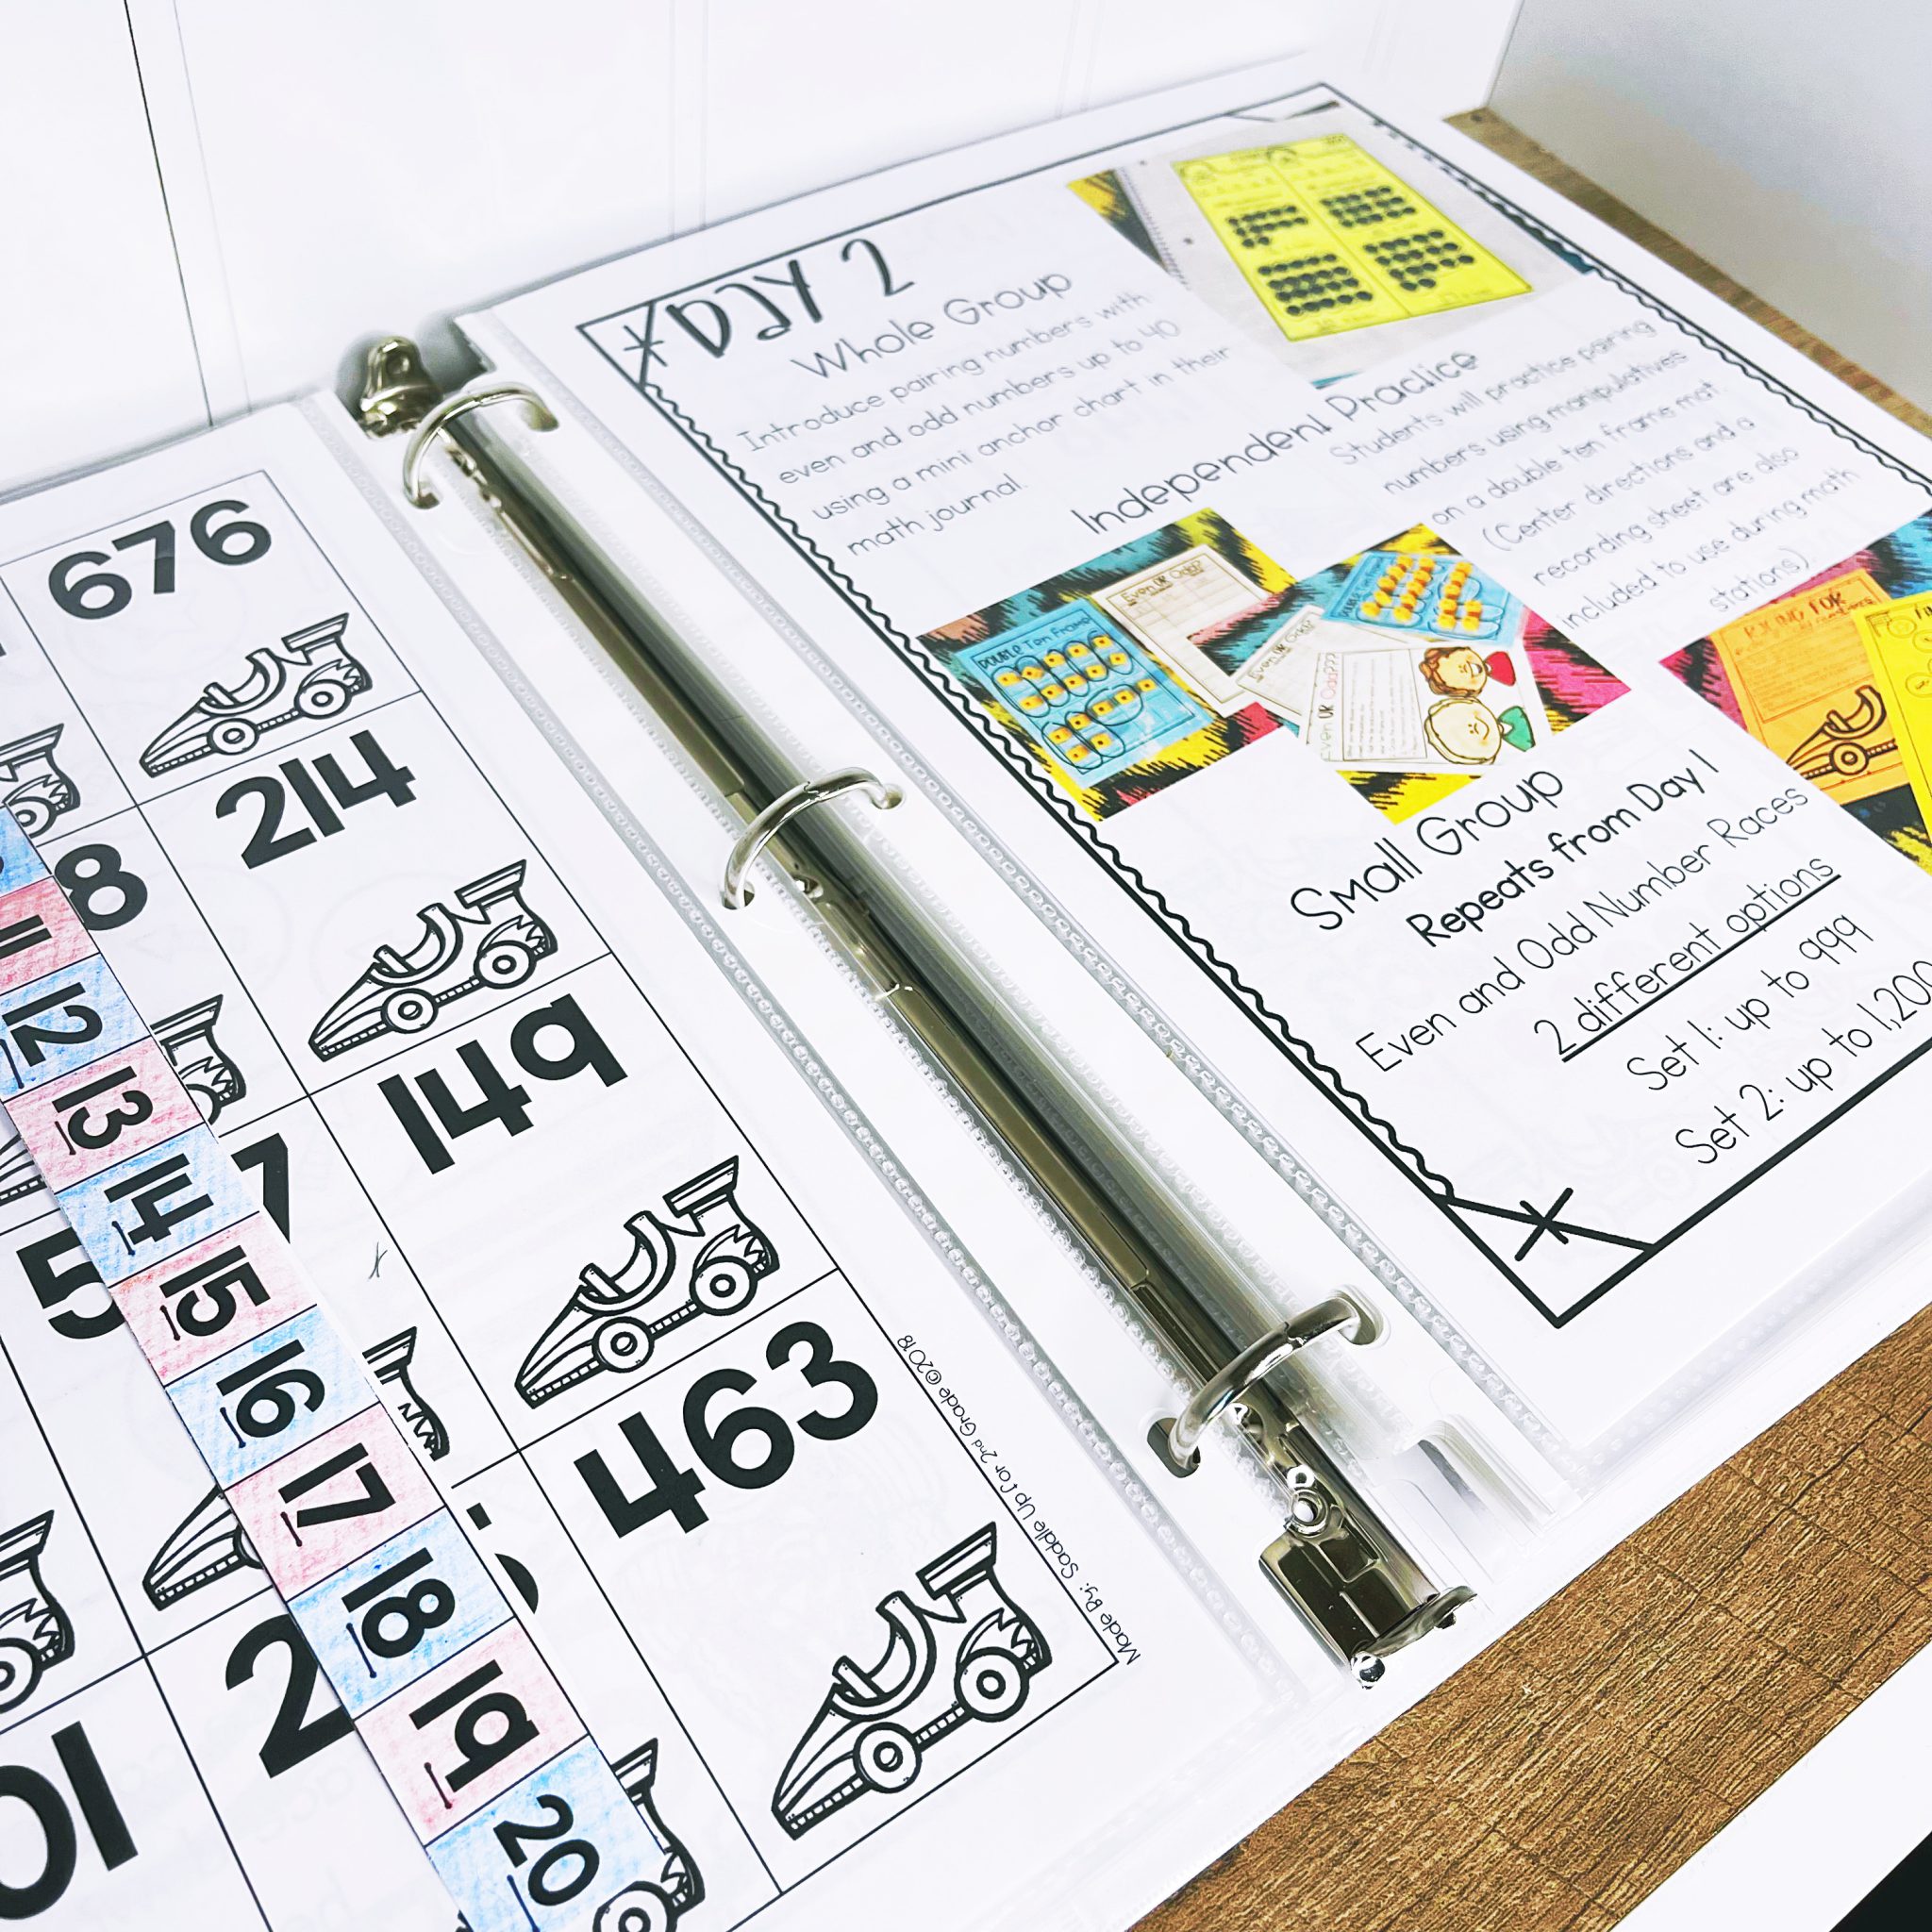 676
214
149
463
8
7
5
2
01
11
12
13
14
15
16
17
18
19
20
Made By: Saddle Up for 2nd Grade ©2018
DAY 2
Whole Group
Introduce pairing numbers with
even and odd numbers up to 40
using a mini anchor chart in their
math journal.
Independent Practice
Students will practice pairing
numbers using manipulatives
on a double ten frame mat.
(Center directions and a
recording sheet are also
included to use during math
stations)
Double Ten Frame
Even OR Odd?
Even OR Odd?
Even OR Odd???
Small Group
Repeats from Day 1
Even and Odd Number Races
2 different options
Set 1: up to 999
Set 2: up to 1,200